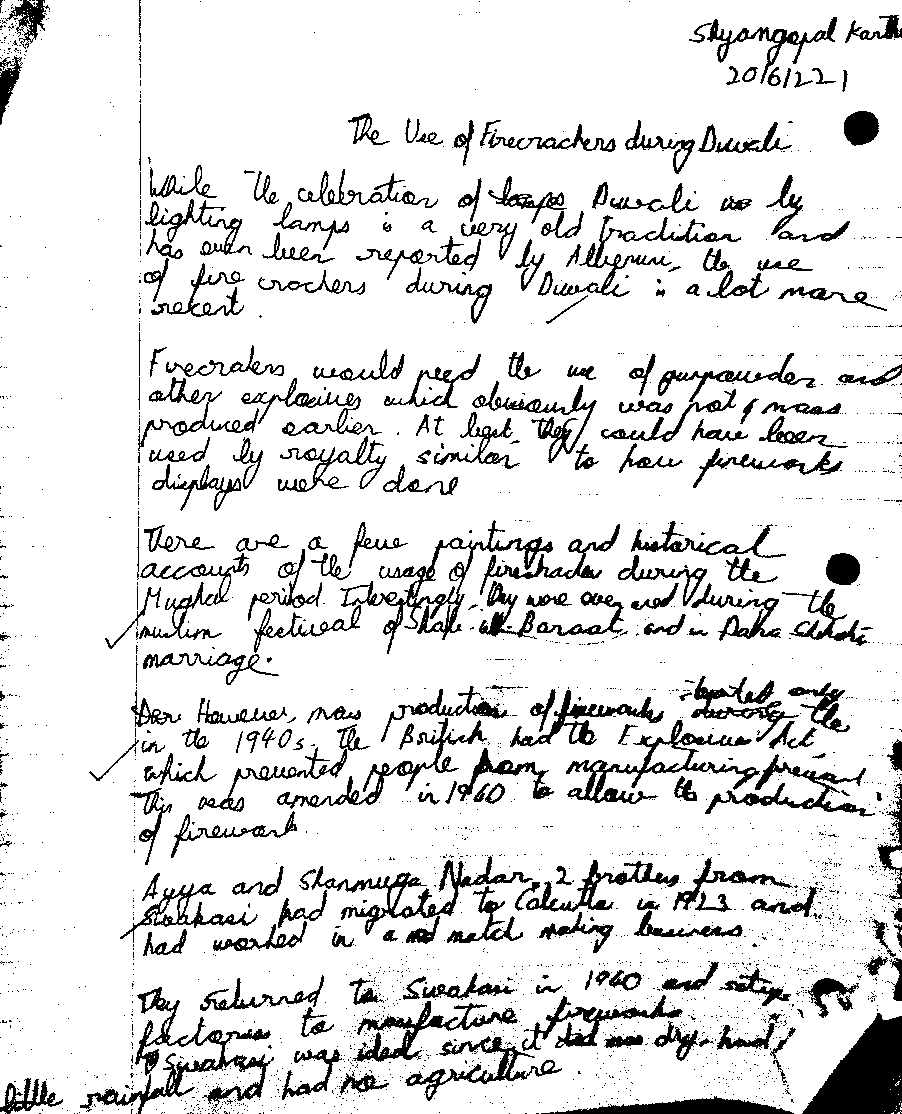 Shyangopal Karthi
20/6/22 1
The Use of Firecrackers during Diwali
While the celebration of Diwali by
lighting lamps is a very old Tradition and
has even been reported by Alberuni, the use
of fire crackers during Diwali is a lot more
recent.
Firecrakers would need the use of gunpowder and
other explosives which obviously was not mass
produced earlier. At best, they could have been
used by royalty similar to how fireworks
displays were done
There are a few paintings and historical
accounts of the usage of during the
Mughal period. Interestingly, they were even used during the
muslim festival of Shab Baraat and in Dara Shikoh
marriage.
However, mass production of fireworks started only
in the 1940s. The British had the Explosives Act
which prevented people from manufacturing
This was amended in 1940 to allow the production
of firework
Ayya and Shanmuga Nadar, 2 brothers from
Sivakasi had migrated to Calcutta in 1923 and
had worked in a match making business.
They returned to Sivakasi in 1940 and setup
factories to manufacture fireworks.
Sivakasi was ideal since it was dry, had
little rainfall and had no agriculture.